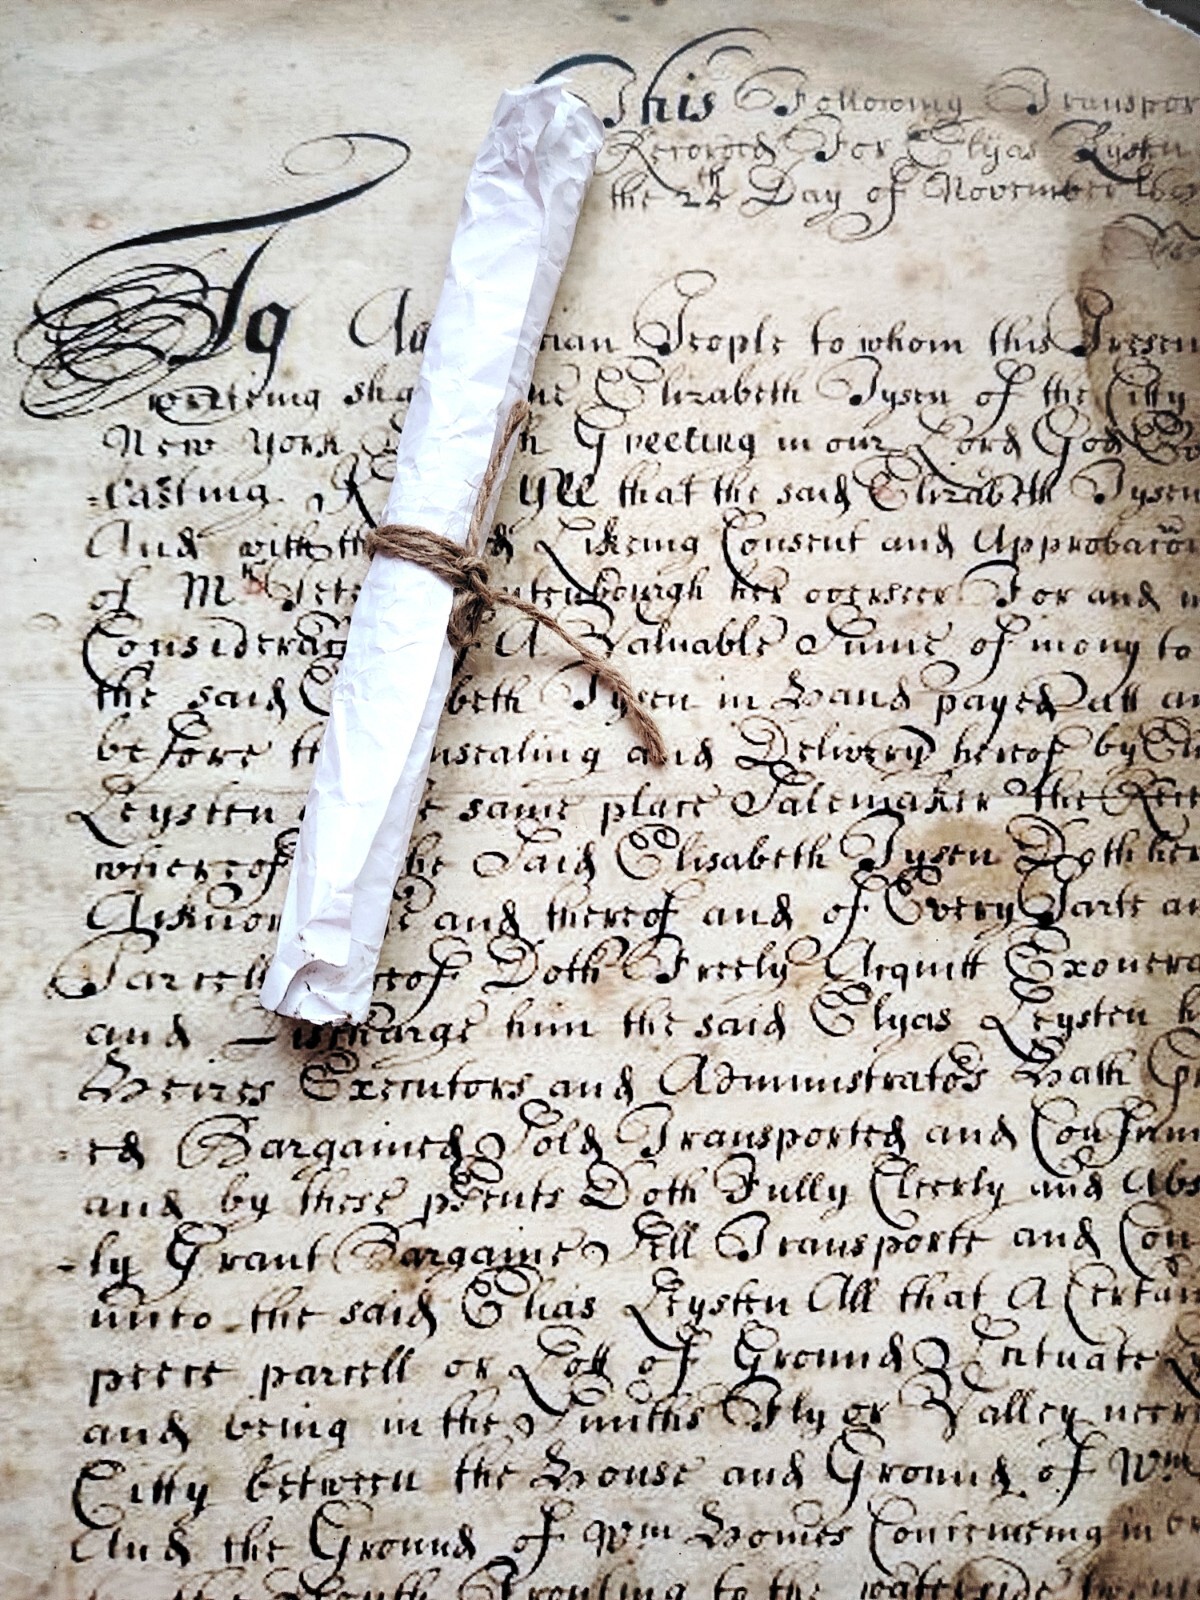 This Following Transpor
Recorded For Elyas
the 25th Day of November 16
To ian People to whom this Presen
writeing sha ne Elizabeth Tysen of the Citty
New York h Greeting in our Lord God
=lasting. Yee that the said Elizabeth Tysen
And with th d Likeing Consent and Approbacon
of Mr Pete utenbourgh her overseer For and
Considerac A Valuable Sume of mony to
the said E beth Tysen in Hand payed att
before th nsealing and Delivery hereof by
Leysten e same place Salemaker the
whereof he Said Elisabeth Tysen Doth her
Acknow and thereof and of Every Parte an
Parcell eof Doth Freely Acquitt Exonera
and Discharge him the said Elyas Leysten h
Heires Executors and Administrators Hath
=ed Bargained Sold Transported and Confirm
and by these psents Doth Fully Cleerly and Abs
-ly Grant Bargaine Sell Transporte and Con
unto the said Elias Leysten All that A Certain
peece parcell or Lott of Ground Scituate
and being in the Smiths Fly or Valley neer
Citty between the House and Ground of Wm
And the Ground of Wm Homes Conteineing in
to the waterside